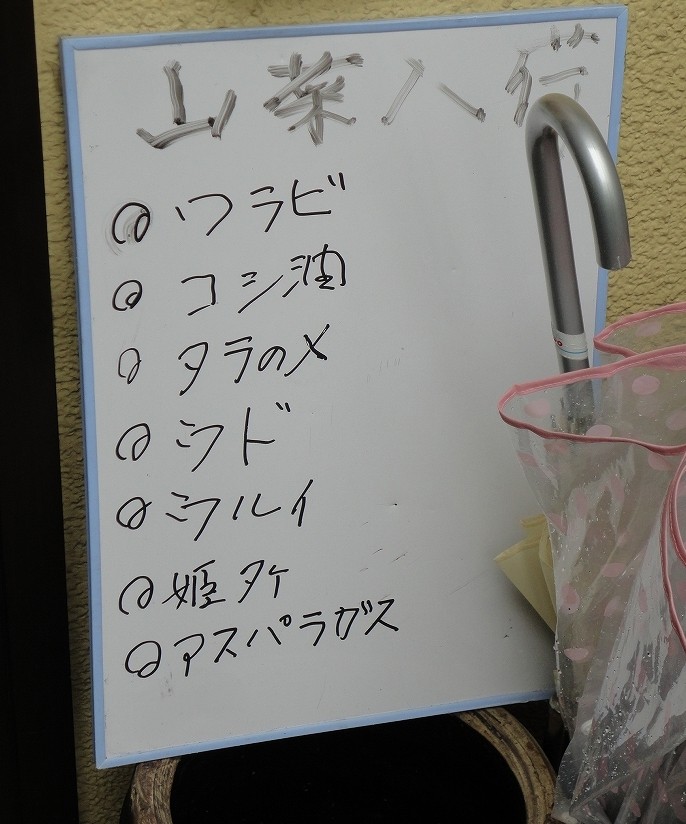 山菜入荷
◎ワラビ
◎コシ油
◎タラのメ
◎ウド
◎ウルイ
◎姫タケ
◎アスパラガス